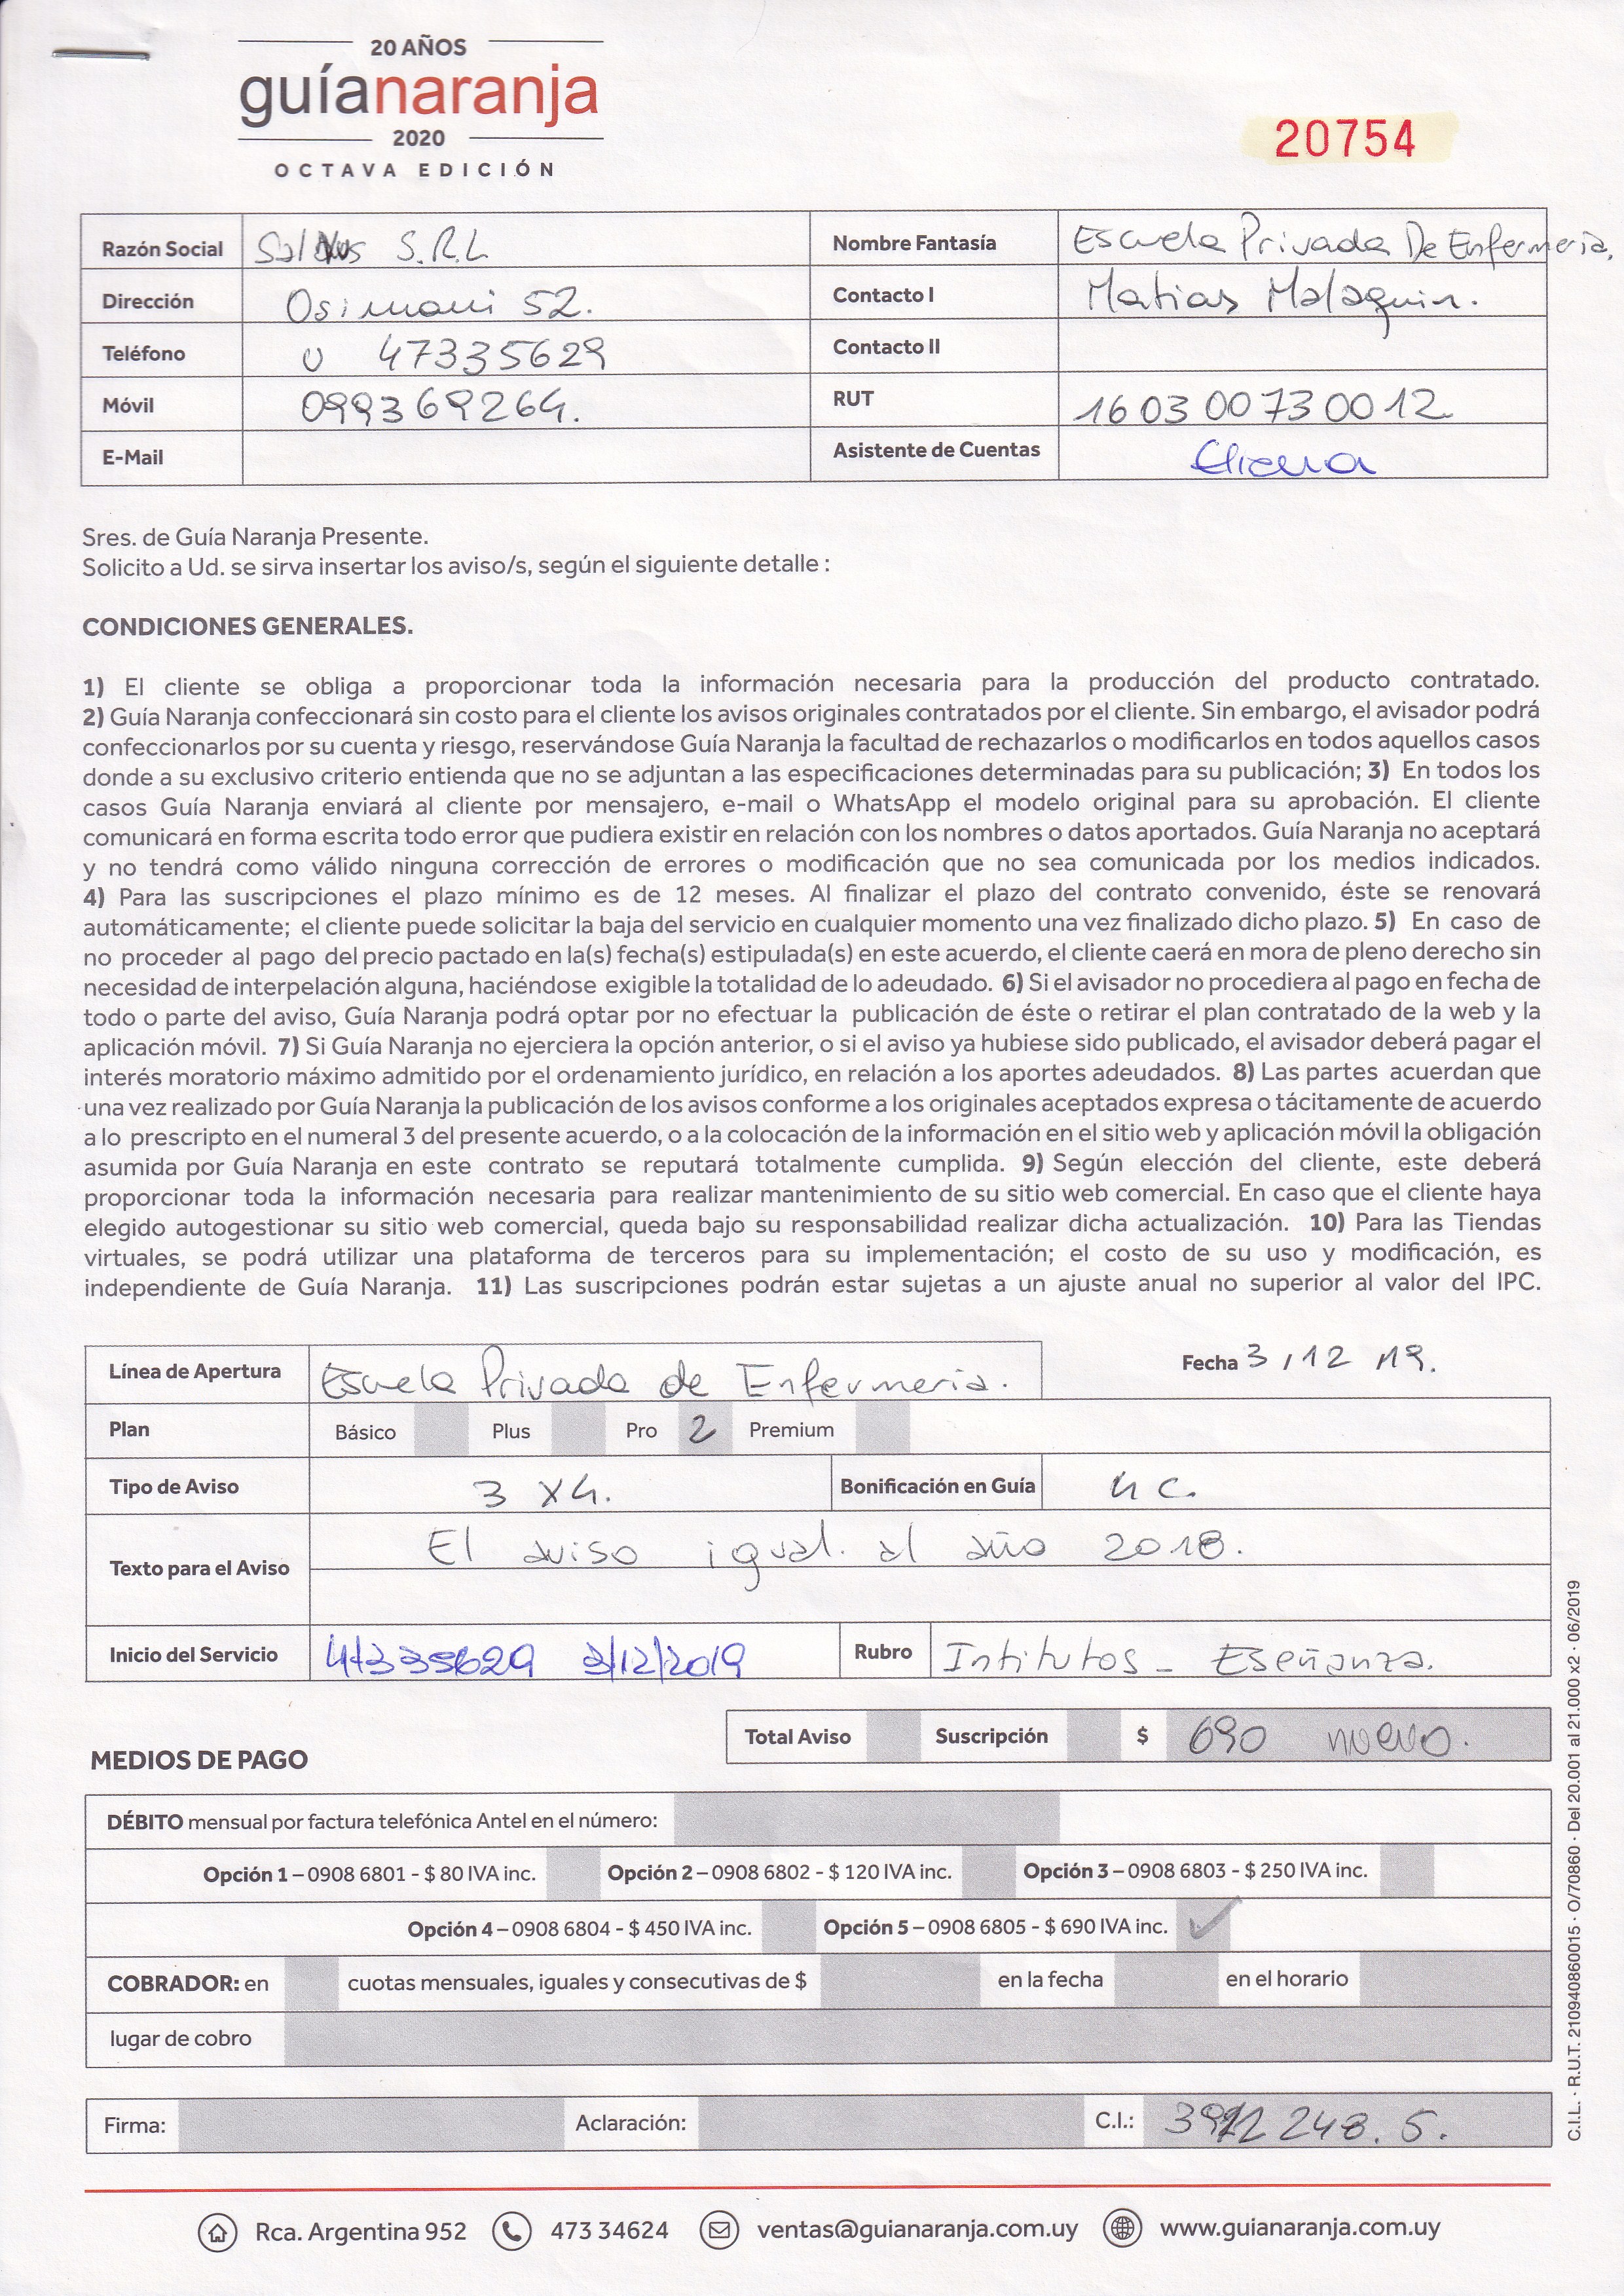 20 AÑOS
guíanaranja
2020
OCTAVA EDICIÓN
20754
Razón Social S.R.L
Nombre Fantasía Escuela Privada De Enfermeria.
Dirección Osimani 52.
Contacto I Matias Malaquin.
Teléfono 47335629
Contacto II
Móvil 099369264.
RUT 160300730012
E-Mail
Asistente de Cuentas
Sres. de Guía Naranja Presente.
Solicito a Ud. se sirva insertar los aviso/s, según el siguiente detalle :
CONDICIONES GENERALES.
1) El cliente se obliga a proporcionar toda la información necesaria para la producción del producto contratado.
2) Guía Naranja confeccionará sin costo para el cliente los avisos originales contratados por el cliente. Sin embargo, el avisador podrá
confeccionarlos por su cuenta y riesgo, reservándose Guía Naranja la facultad de rechazarlos o modificarlos en todos aquellos casos
donde a su exclusivo criterio entienda que no se adjuntan a las especificaciones determinadas para su publicación; 3) En todos los
casos Guía Naranja enviará al cliente por mensajero, e-mail o WhatsApp el modelo original para su aprobación. El cliente
comunicará en forma escrita todo error que pudiera existir en relación con los nombres o datos aportados. Guía Naranja no aceptará
y no tendrá como válido ninguna corrección de errores o modificación que no sea comunicada por los medios indicados.
4) Para las suscripciones el plazo mínimo es de 12 meses. Al finalizar el plazo del contrato convenido, éste se renovará
automáticamente; el cliente puede solicitar la baja del servicio en cualquier momento una vez finalizado dicho plazo. 5) En caso de
no proceder al pago del precio pactado en la(s) fecha(s) estipulada(s) en este acuerdo, el cliente caerá en mora de pleno derecho sin
necesidad de interpelación alguna, haciéndose exigible la totalidad de lo adeudado. 6) Si el avisador no procediera al pago en fecha de
todo o parte del aviso, Guía Naranja podrá optar por no efectuar la publicación de éste o retirar el plan contratado de la web y la
aplicación móvil. 7) Si Guía Naranja no ejerciera la opción anterior, o si el aviso ya hubiese sido publicado, el avisador deberá pagar el
interés moratorio máximo admitido por el ordenamiento jurídico, en relación a los aportes adeudados. 8) Las partes acuerdan que
una vez realizado por Guía Naranja la publicación de los avisos conforme a los originales aceptados expresa o tácitamente de acuerdo
a lo prescripto en el numeral 3 del presente acuerdo, o a la colocación de la información en el sitio web y aplicación móvil la obligación
asumida por Guía Naranja en este contrato se reputará totalmente cumplida. 9) Según elección del cliente, este deberá
proporcionar toda la información necesaria para realizar mantenimiento de su sitio web comercial. En caso que el cliente haya
elegido autogestionar su sitio web comercial, queda bajo su responsabilidad realizar dicha actualización. 10) Para las Tiendas
virtuales, se podrá utilizar una plataforma de terceros para su implementación; el costo de su uso y modificación, es
independiente de Guía Naranja. 11) Las suscripciones podrán estar sujetas a un ajuste anual no superior al valor del IPC.
Línea de Apertura Escuela Privada de Enfermeria.
Fecha 3 / 12 /19.
Plan Básico Plus Pro 2 Premium
Tipo de Aviso 3 x4.
Bonificación en Guía 4 c.
Texto para el Aviso El aviso igual. al año 2018.
Inicio del Servicio 47335629 3/12/2019
Rubro Intitutos - Eseñanza.
Total Aviso Suscripción $ 690 nuevo.
MEDIOS DE PAGO
DÉBITO mensual por factura telefónica Antel en el número:
Opción 1 – 0908 6801 - $ 80 IVA inc. Opción 2 – 0908 6802 - $ 120 IVA inc. Opción 3 – 0908 6803 - $ 250 IVA inc.
Opción 4 – 0908 6804 - $ 450 IVA inc. Opción 5 – 0908 6805 - $ 690 IVA inc. ✓
COBRADOR: en cuotas mensuales, iguales y consecutivas de $ en la fecha en el horario
lugar de cobro
Firma: Aclaración: C.I.: 248. 5.
Rca. Argentina 952 473 34624 ventas@guianaranja.com.uy www.guianaranja.com.uy
C.I.L. · R.U.T. 210940860015 · O/70860 · Del 20.001 al 21.000 x2 · 06/2019